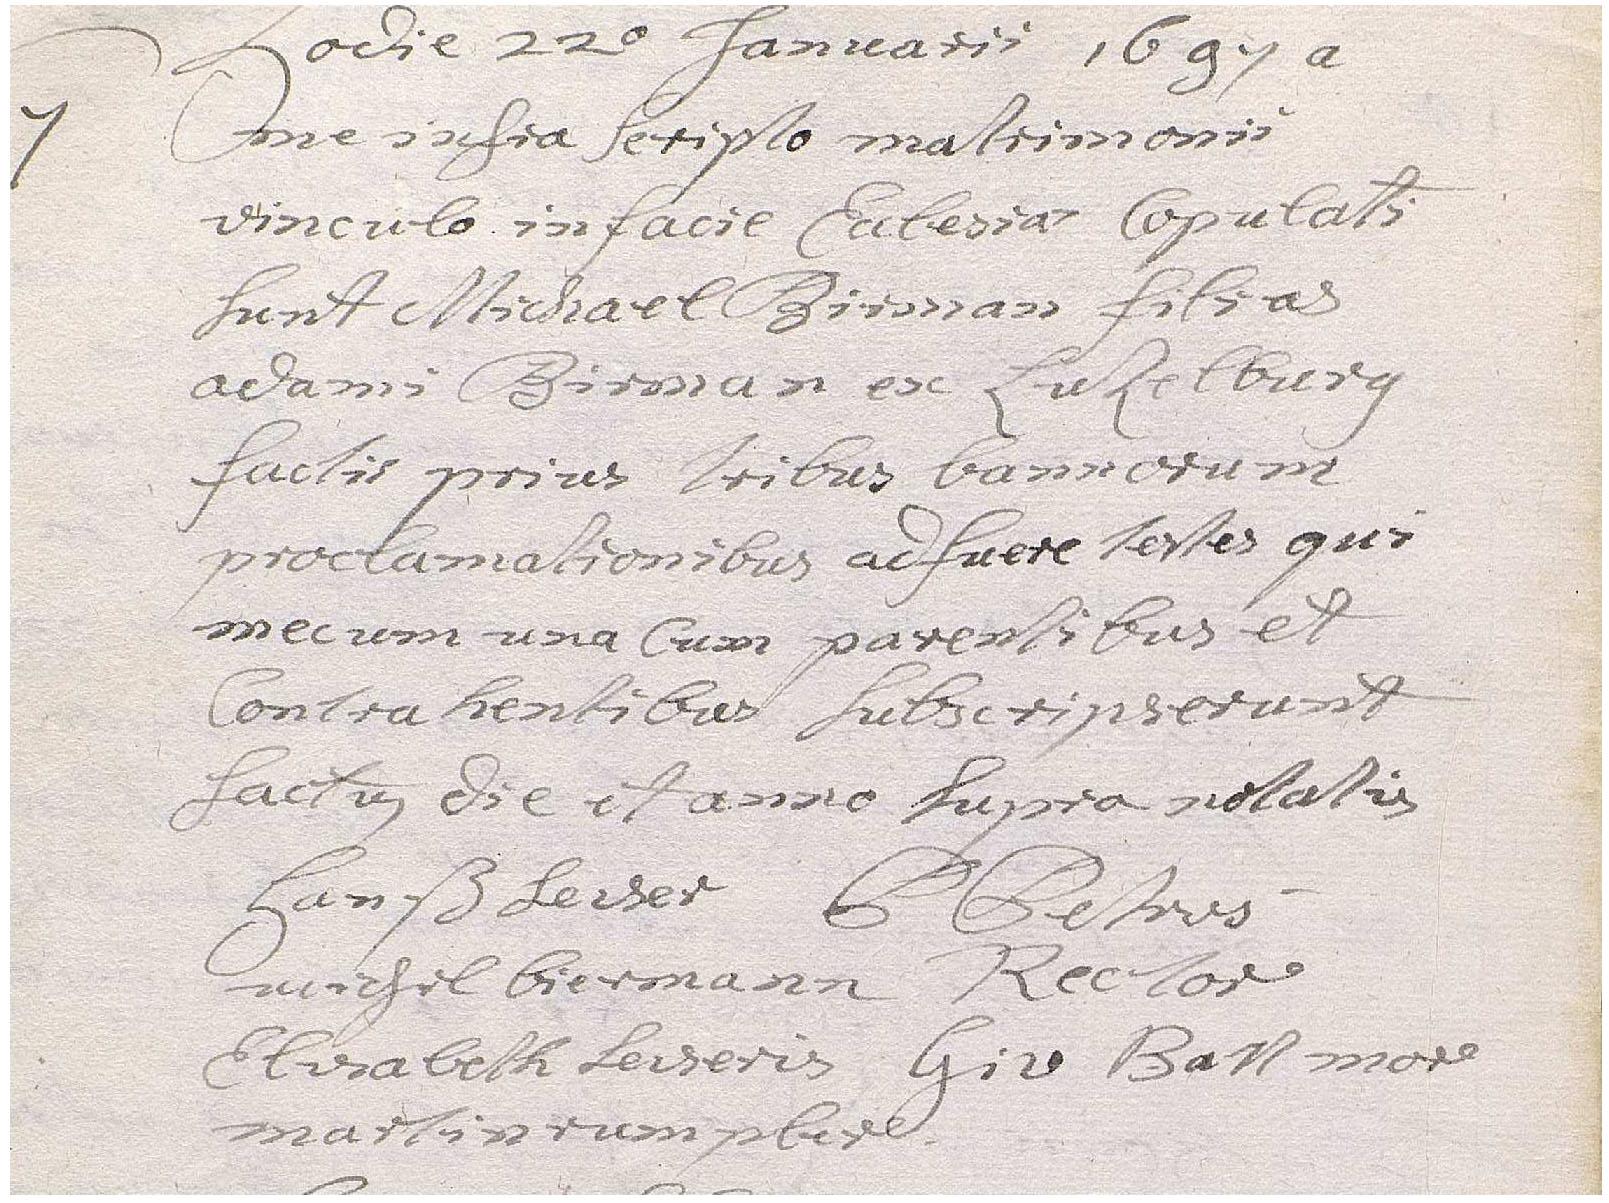 Hodie 22º Januarii 1697 a
7 me infra scripto matrimonii
vinculo in facie Eclesiæ Copulati
sunt Michael Birman filius
adami Birman ex Lutzelburg
factis prius tribus bannorum
proclamationibus adfuere testes qui
mecum una Cum parentibus et
Contrahentibus subscripserunt
factum die et anno supra notatis
Hanß Leyser P Petrus
michel biermann Rector
Elisabeth Leyseris
martin rumpler